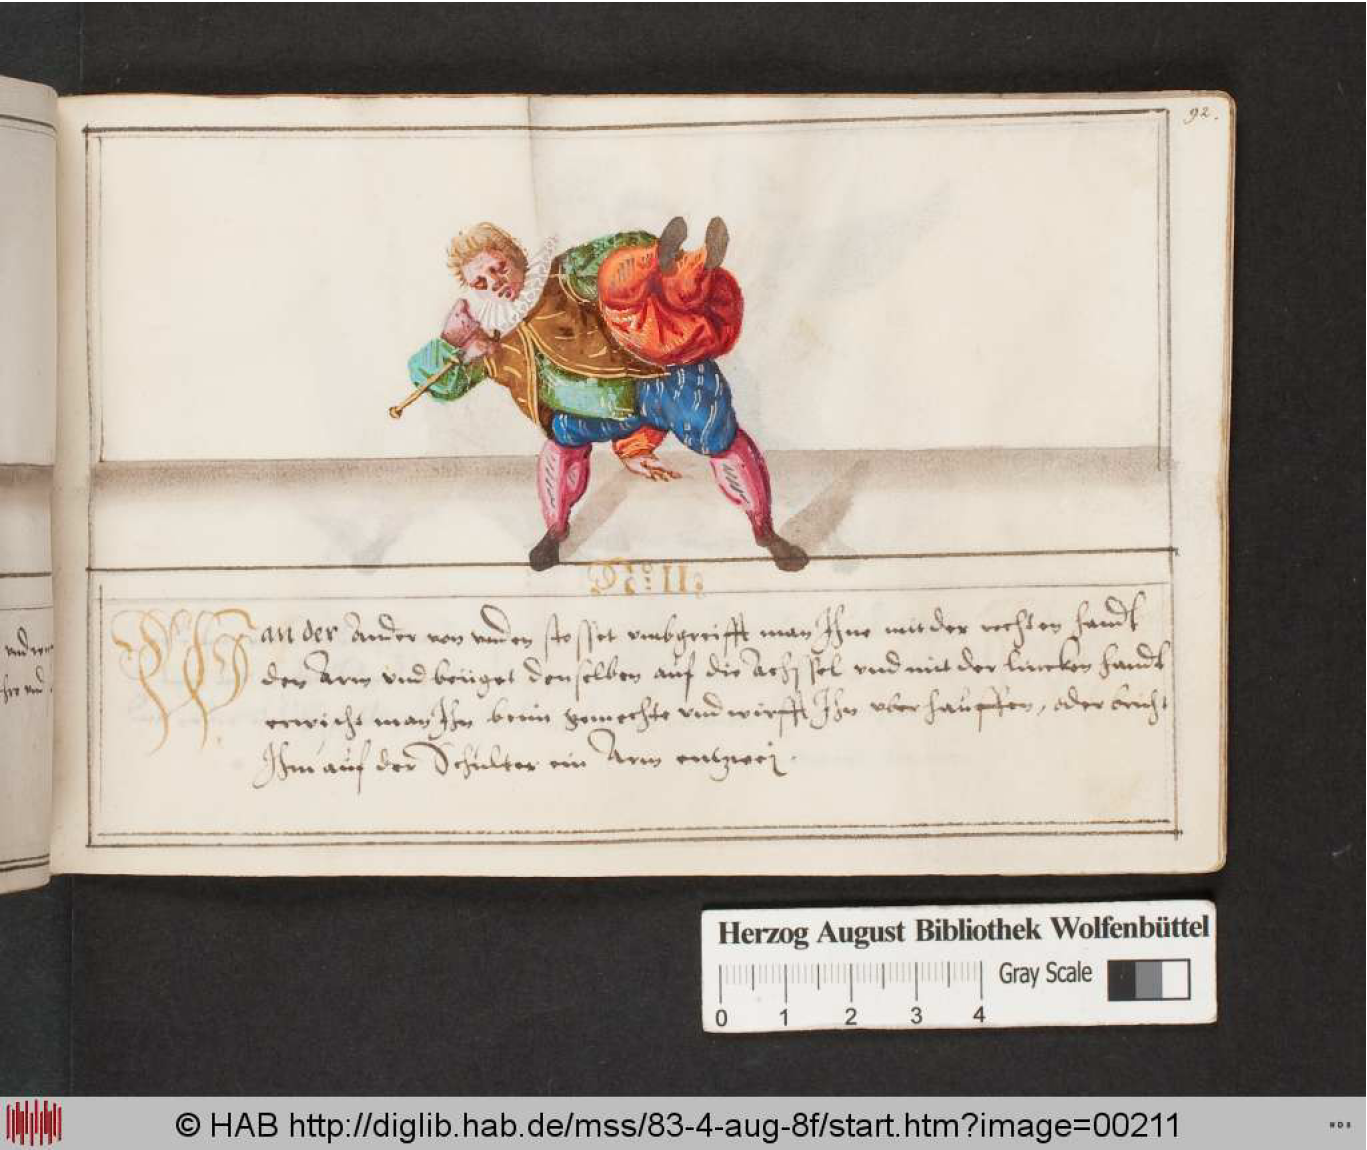 92.
Wan der Ander von vnden stosset vmbgreifft man Ihne mit der rechten handt
den Arm vnd beüget denselben auf die Achssel vnd mit der lincken handt
erwischt man Ihn beim gemechte vnd wirfft Ihn vber hauffen, oder bricht
Ihm auf der Schulter ein Arm entzwei.
Herzog August Bibliothek Wolfenbüttel
Gray Scale
0 1 2 3 4
© HAB http://diglib.hab.de/mss/83-4-aug-8f/start.htm?image=00211